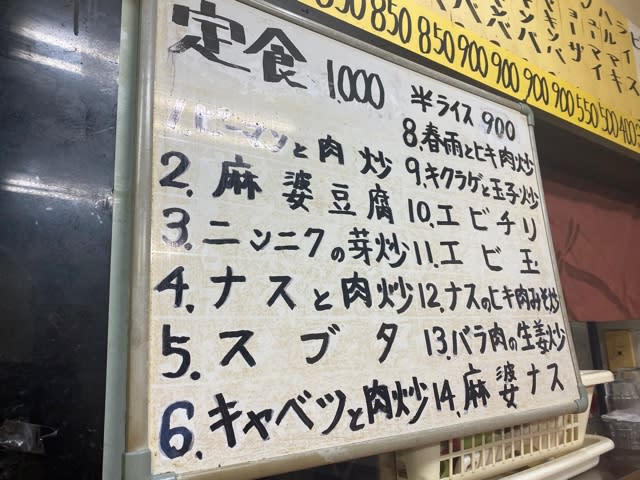 定食 1,000 半ライス 900
1.ピーマンと肉炒
2.麻婆豆腐
3.ニンニクの芽炒
4.ナスと肉炒
5.スブタ
6.キャベツと肉炒
8.春雨とヒキ肉炒
9.キクラゲと玉子炒
10.エビチリ
11.エビ玉
12.ナスのヒキ肉みそ炒
13.バラ肉の生姜炒
14.麻婆ナス
850 850 850 900 900 900 900 550 500 400